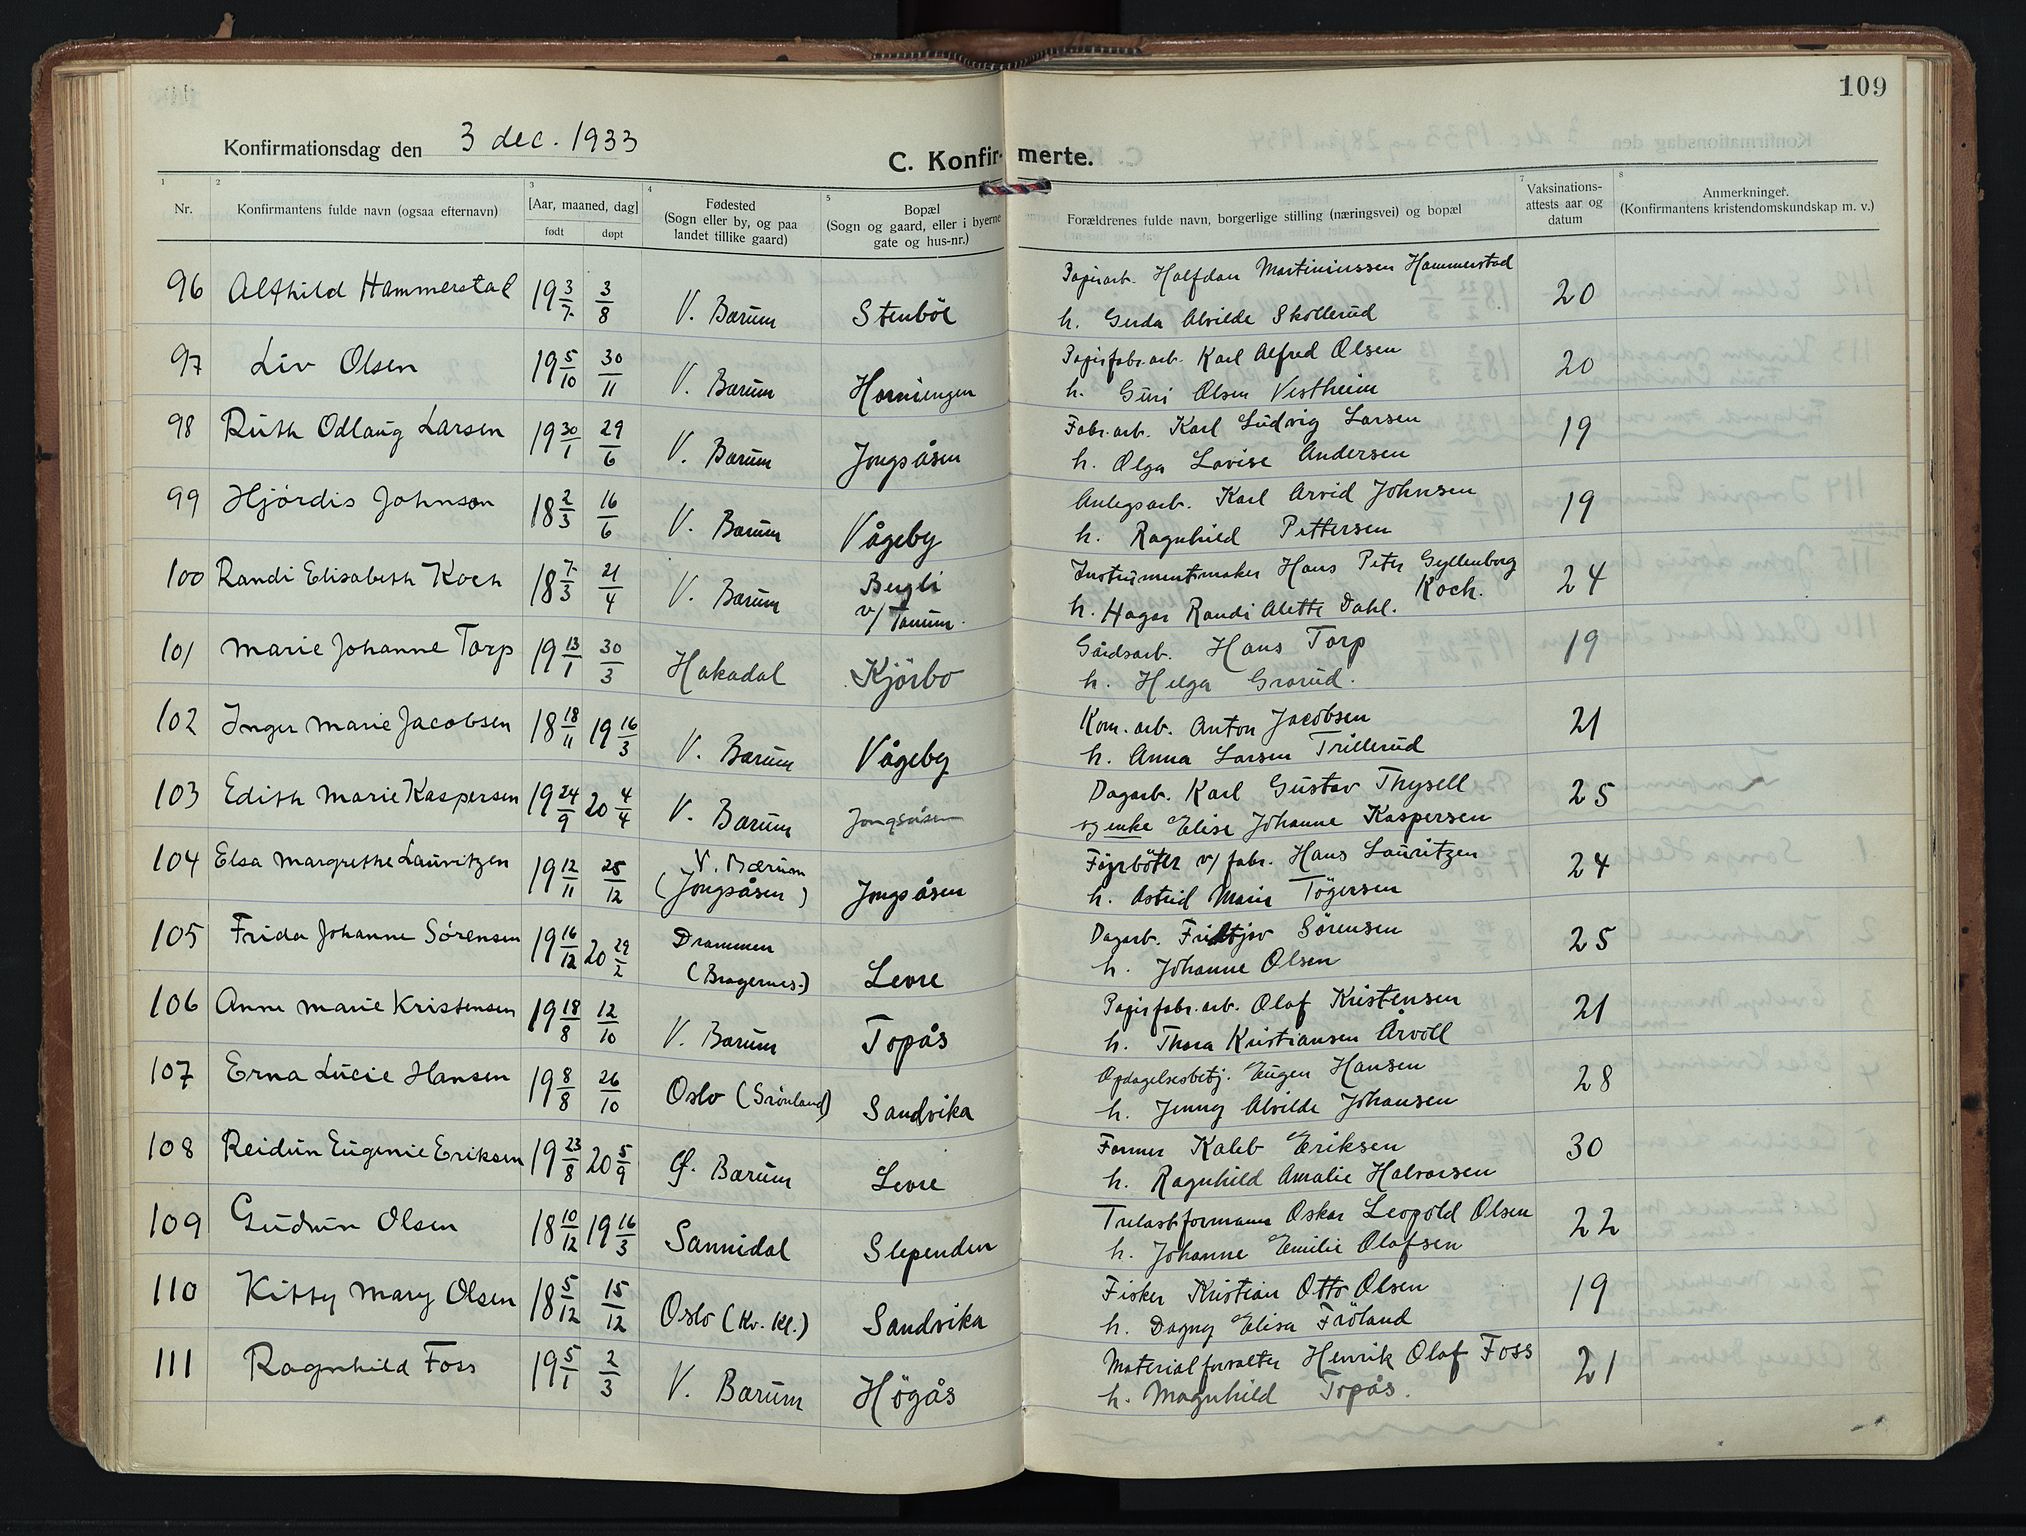 109
Konfirmationsdag den 3 dec. 1933
C. Konfirmerte.
1 2 3 4 5 7 8
Nr. Konfirmantens fulde navn (ogsaa efternavn) [Aar, maaned, dag] født døpt Fødested (Sogn eller by, og paa landet tillike gaard) Bopæl (Sogn og gaard, eller i byerne gate og hus-nr.) Forældrenes fulde navn, borgerlige stilling (næringsvei) og bopæl Vaksinations-attests aar og datum Anmerkninger. (Konfirmantens kristendomskundskap m. v.)
96 Alfhild Hammerstad 19 3/7 3/8 V. Bærum Stenböl Papirarb. Halfdan Martiniussen Hammerstad
h. Gerda Alvilde Skollerud 20
97 Liv Olsen 19 5/10 30/11 V. Bærum Horniengen Papirfabr.arb. Karl Alfred Olsen
h. Guri Olsen Vestheim 20
98 Ruth Odlaug Larsen 19 30/1 29/6 V. Bærum Jongsåsen Fabr.arb. Karl Ludvig Larsen
h. Olga Lovise Andersen 19
99 Hjördis Johnson 18 2/3 16/6 V. Bærum Vågeby Anlegsarb. Karl Arvid Johnsen
h. Ragnhild Pettersen 19
100 Randi Elisabeth Koch 18 7/3 21/4 V. Bærum Bergli v/ Tanum. Instrumentmaker Hans Peter Gyllenborg Koch.
h. Hagar Randi Alette Dahl. 24
101 Marie Johanne Torp 19 13/1 30/3 Hakadal Kjörbo Gårdsarb. Hans Torp
h. Helga Grorud. 19
102 Inger Marie Jacobsen 18 18/11 19 16/3 V. Bærum Vågeby Kom. arb. Anton Jacobsen
h. Anna Larsen Trillerud 21
103 Edith Marie Kaspersen 19 24/9 20 4/4 V. Bærum Jongsåsen Dagarb. Karl Gustav Thysell
og enke Elise Johanne Kaspersen 25
104 Elsa Margrethe Lauritzen 19 12/11 25/12 V. Bærum (Jongsåsen) Jongsåsen Fyrböter v/ fabr. Hans Lauritzen
h. Astrid Marie Tögersen 24
105 Frida Johanne Sørensen 19 16/12 20 29/2 Drammen (Bragernes.) Levre Dagarb. Fridtjov Sørensen
h. Johanne Olsen 25
106 Anne Marie Kristensen 19 18/8 12/10 V. Bærum Topås Papirfabr.arb. Olaf Kristensen
h. Thora Kristiansen Årvoll 21
107 Erna Lucie Hansen 19 8/8 26/10 Oslo (Grønland) Sandvika Opdagelsesbetj. Eugen Hansen
h. Jenny Alvilde Johansen 28
108 Reidun Eugenie Eriksen 19 23/8 20 5/9 Ø. Bærum Levre Former Kaleb Eriksen
h. Ragnhild Amalie Halvorsen 30
109 Gudrun Olsen 18 10/12 19 16/3 Sannidal Slependen Trelastformann Oskar Leopold Olsen
h. Johanne Emilie Olafsen 22
110 Kitty Mary Olsen 18 5/12 15/12 Oslo (Kv. Kl.) Sandvika Fisker Kristian Otto Olsen
h. Dagny Elisa Fröland 19
111 Ragnhild Foss 19 5/1 2/3 V. Bærum Högås Materialforvalter Henrik Olaf Foss
h. Magnhild Topås. 21